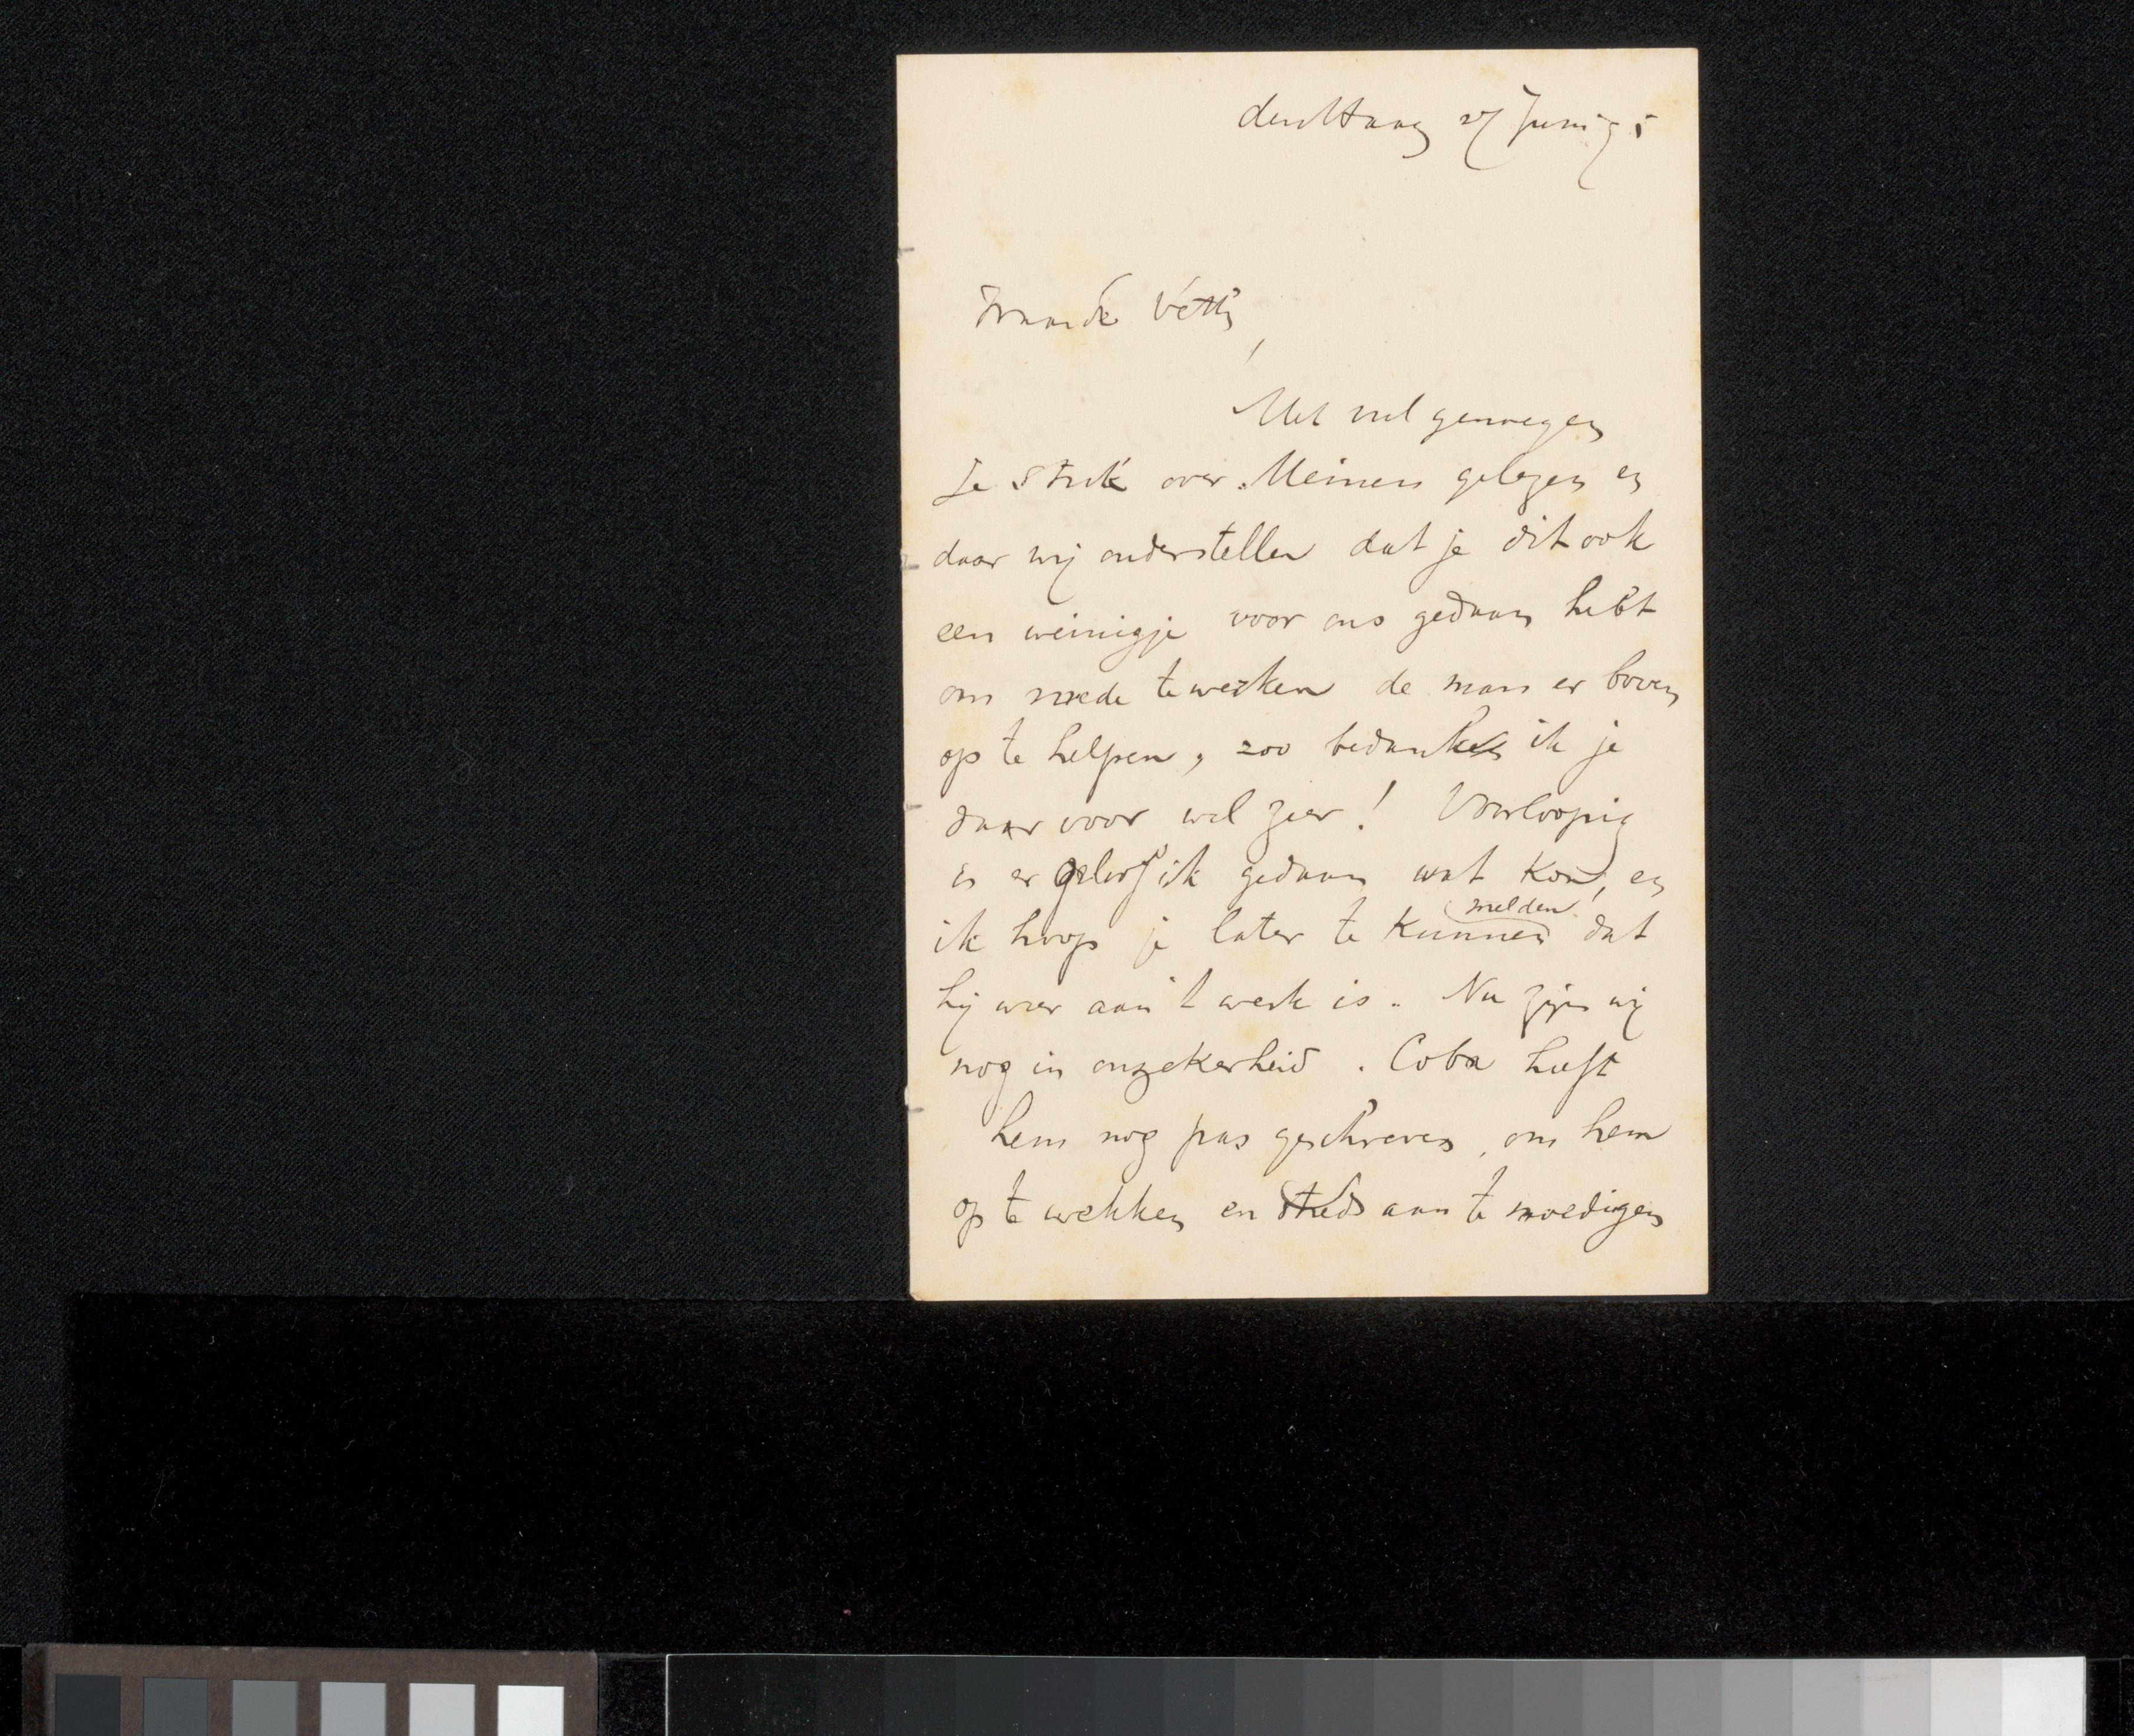 den Haag 27 Juni 95
Waarde Veth,
Met veel genoegen
je stuk over Meiners gelezen en
daar wij onderstellen dat je dit ook
een weinigje voor ons gedaan hebt
om mede te werken de man er boven
op te helpen, zoo bedank ik je
daar voor wel zeer! Voorloopig
is er geloof ik gedaan wat kon, en
ik hoop je later te kunnen melden dat
hij weer aan 't werk is. Nu zijn wij
nog in onzekerheid. Coba heeft
hem nog pas geschreven, om hem
op te wekken en steeds aan te moedigen